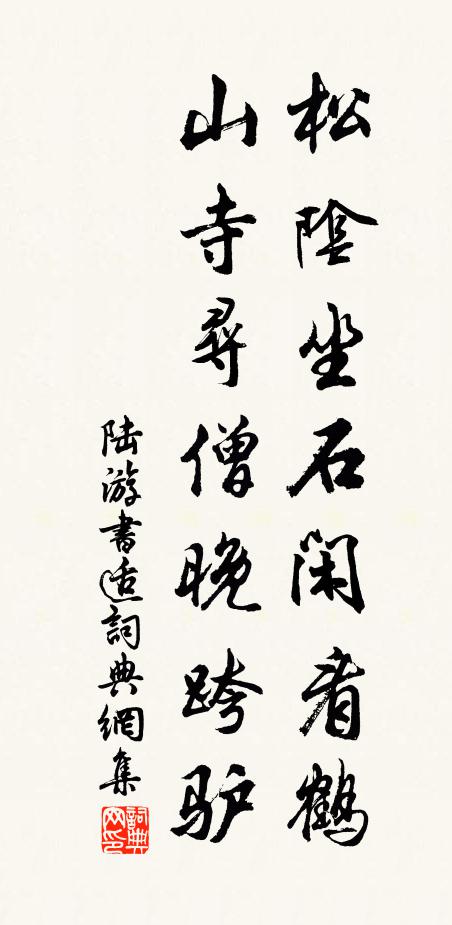 松陰坐石閑看鶴
山寺尋僧晚跨驴
陆游書适詞典網集
詞典
网印